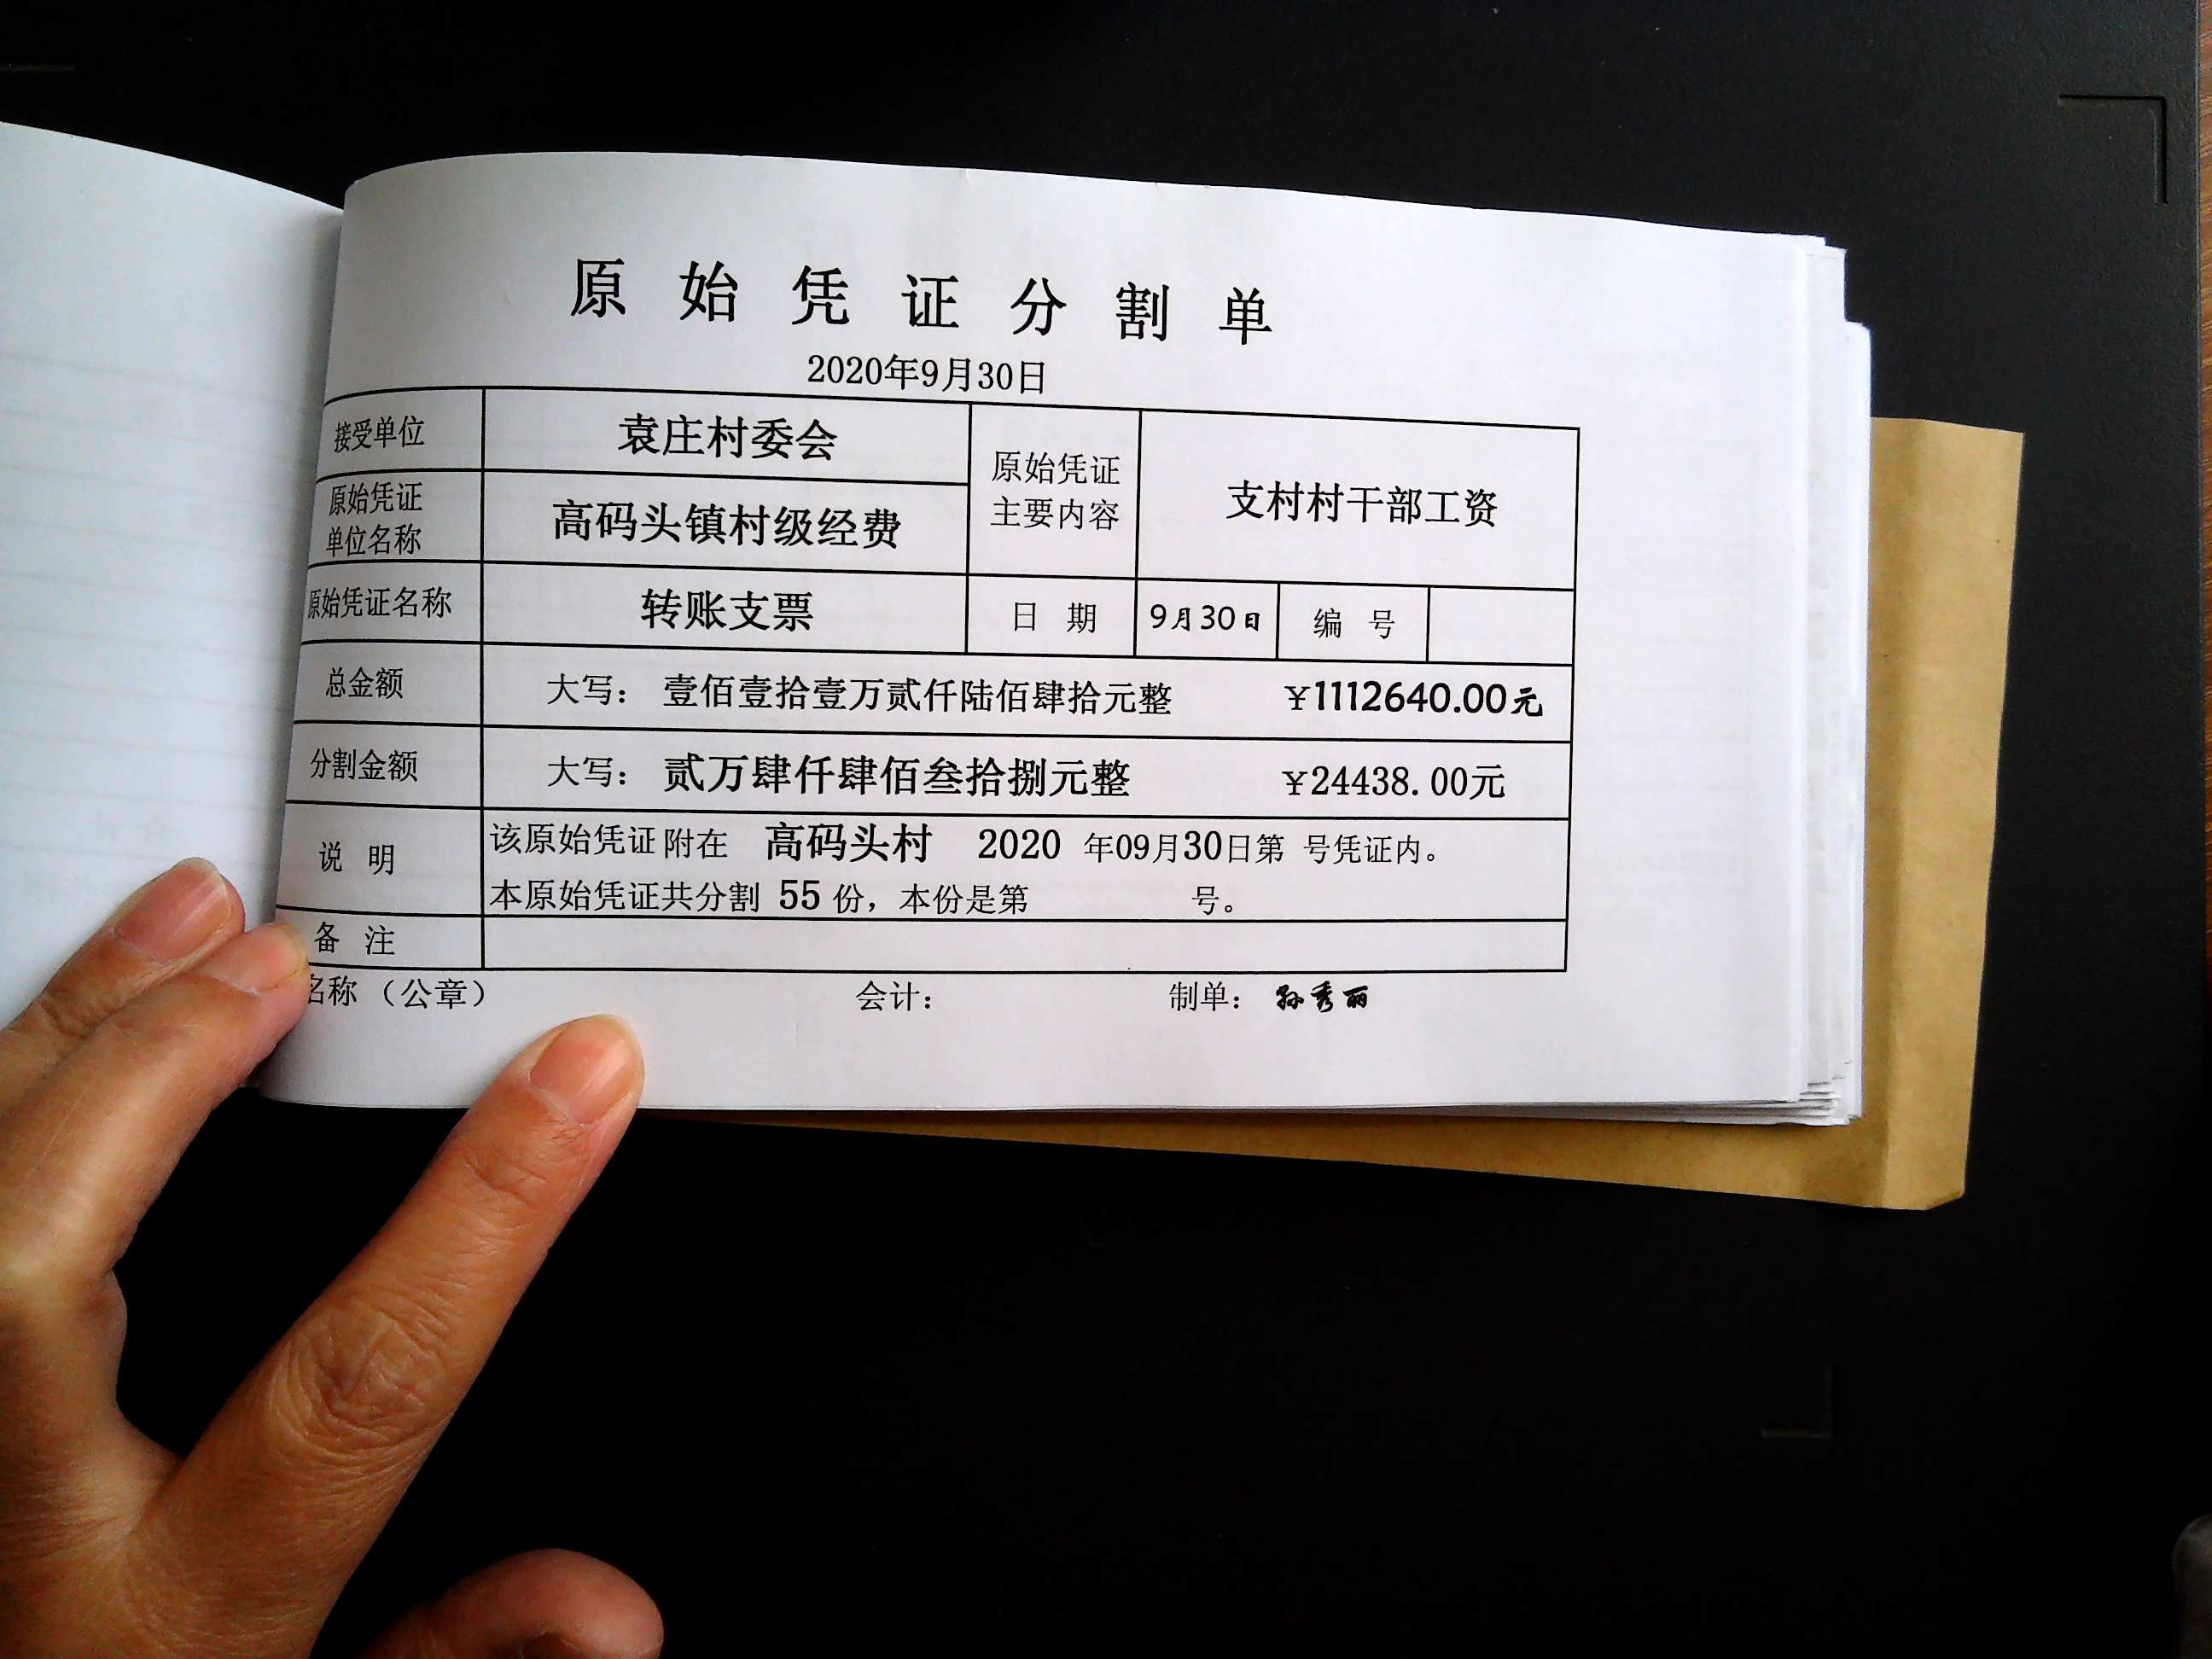 原始凭证分割单
2020年9月30日
接受单位 袁庄村委会
原始凭证主要内容 支村村干部工资
原始凭证单位名称 高码头镇村级经费
原始凭证名称 转账支票 日期 9月30日 编号
总金额 大写： 壹佰壹拾壹万贰仟陆佰肆拾元整 ￥1112640.00元
分割金额 大写： 贰万肆仟肆佰叁拾捌元整 ￥24438.00元
说明 该原始凭证附在 高码头村 2020 年09月30日第 号凭证内。
本原始凭证共分割 55 份，本份是第 号。
备注
名称（公章） 会计： 制单： 孙秀丽